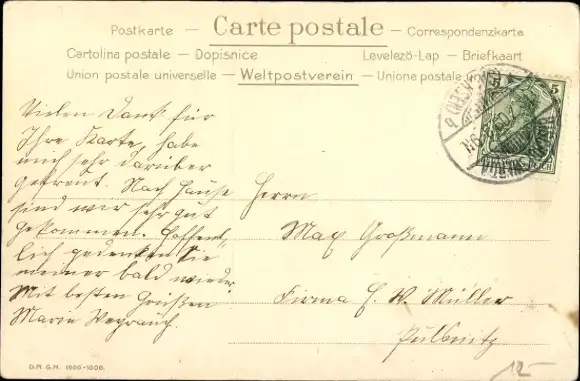 Postkarte — Carte postale — Correspondenzkarte
Cartolina postale — Dopisnice Levelező-Lap — Briefkaart
Union postale universelle — Weltpostverein — Unione postale
5 5
Vielen Dank für
Ihre Karte, habe
mich sehr darüber
gefreut. Nach Hause
sind wir sehr gut
gekommen. Hoffent-
lich gedenken Sie
meiner bald wieder.
Mit besten Grüßen
Marie
Herrn
Max Großmann
Firma W. Müller
Pulsnitz
D.R.G.M.
12.-